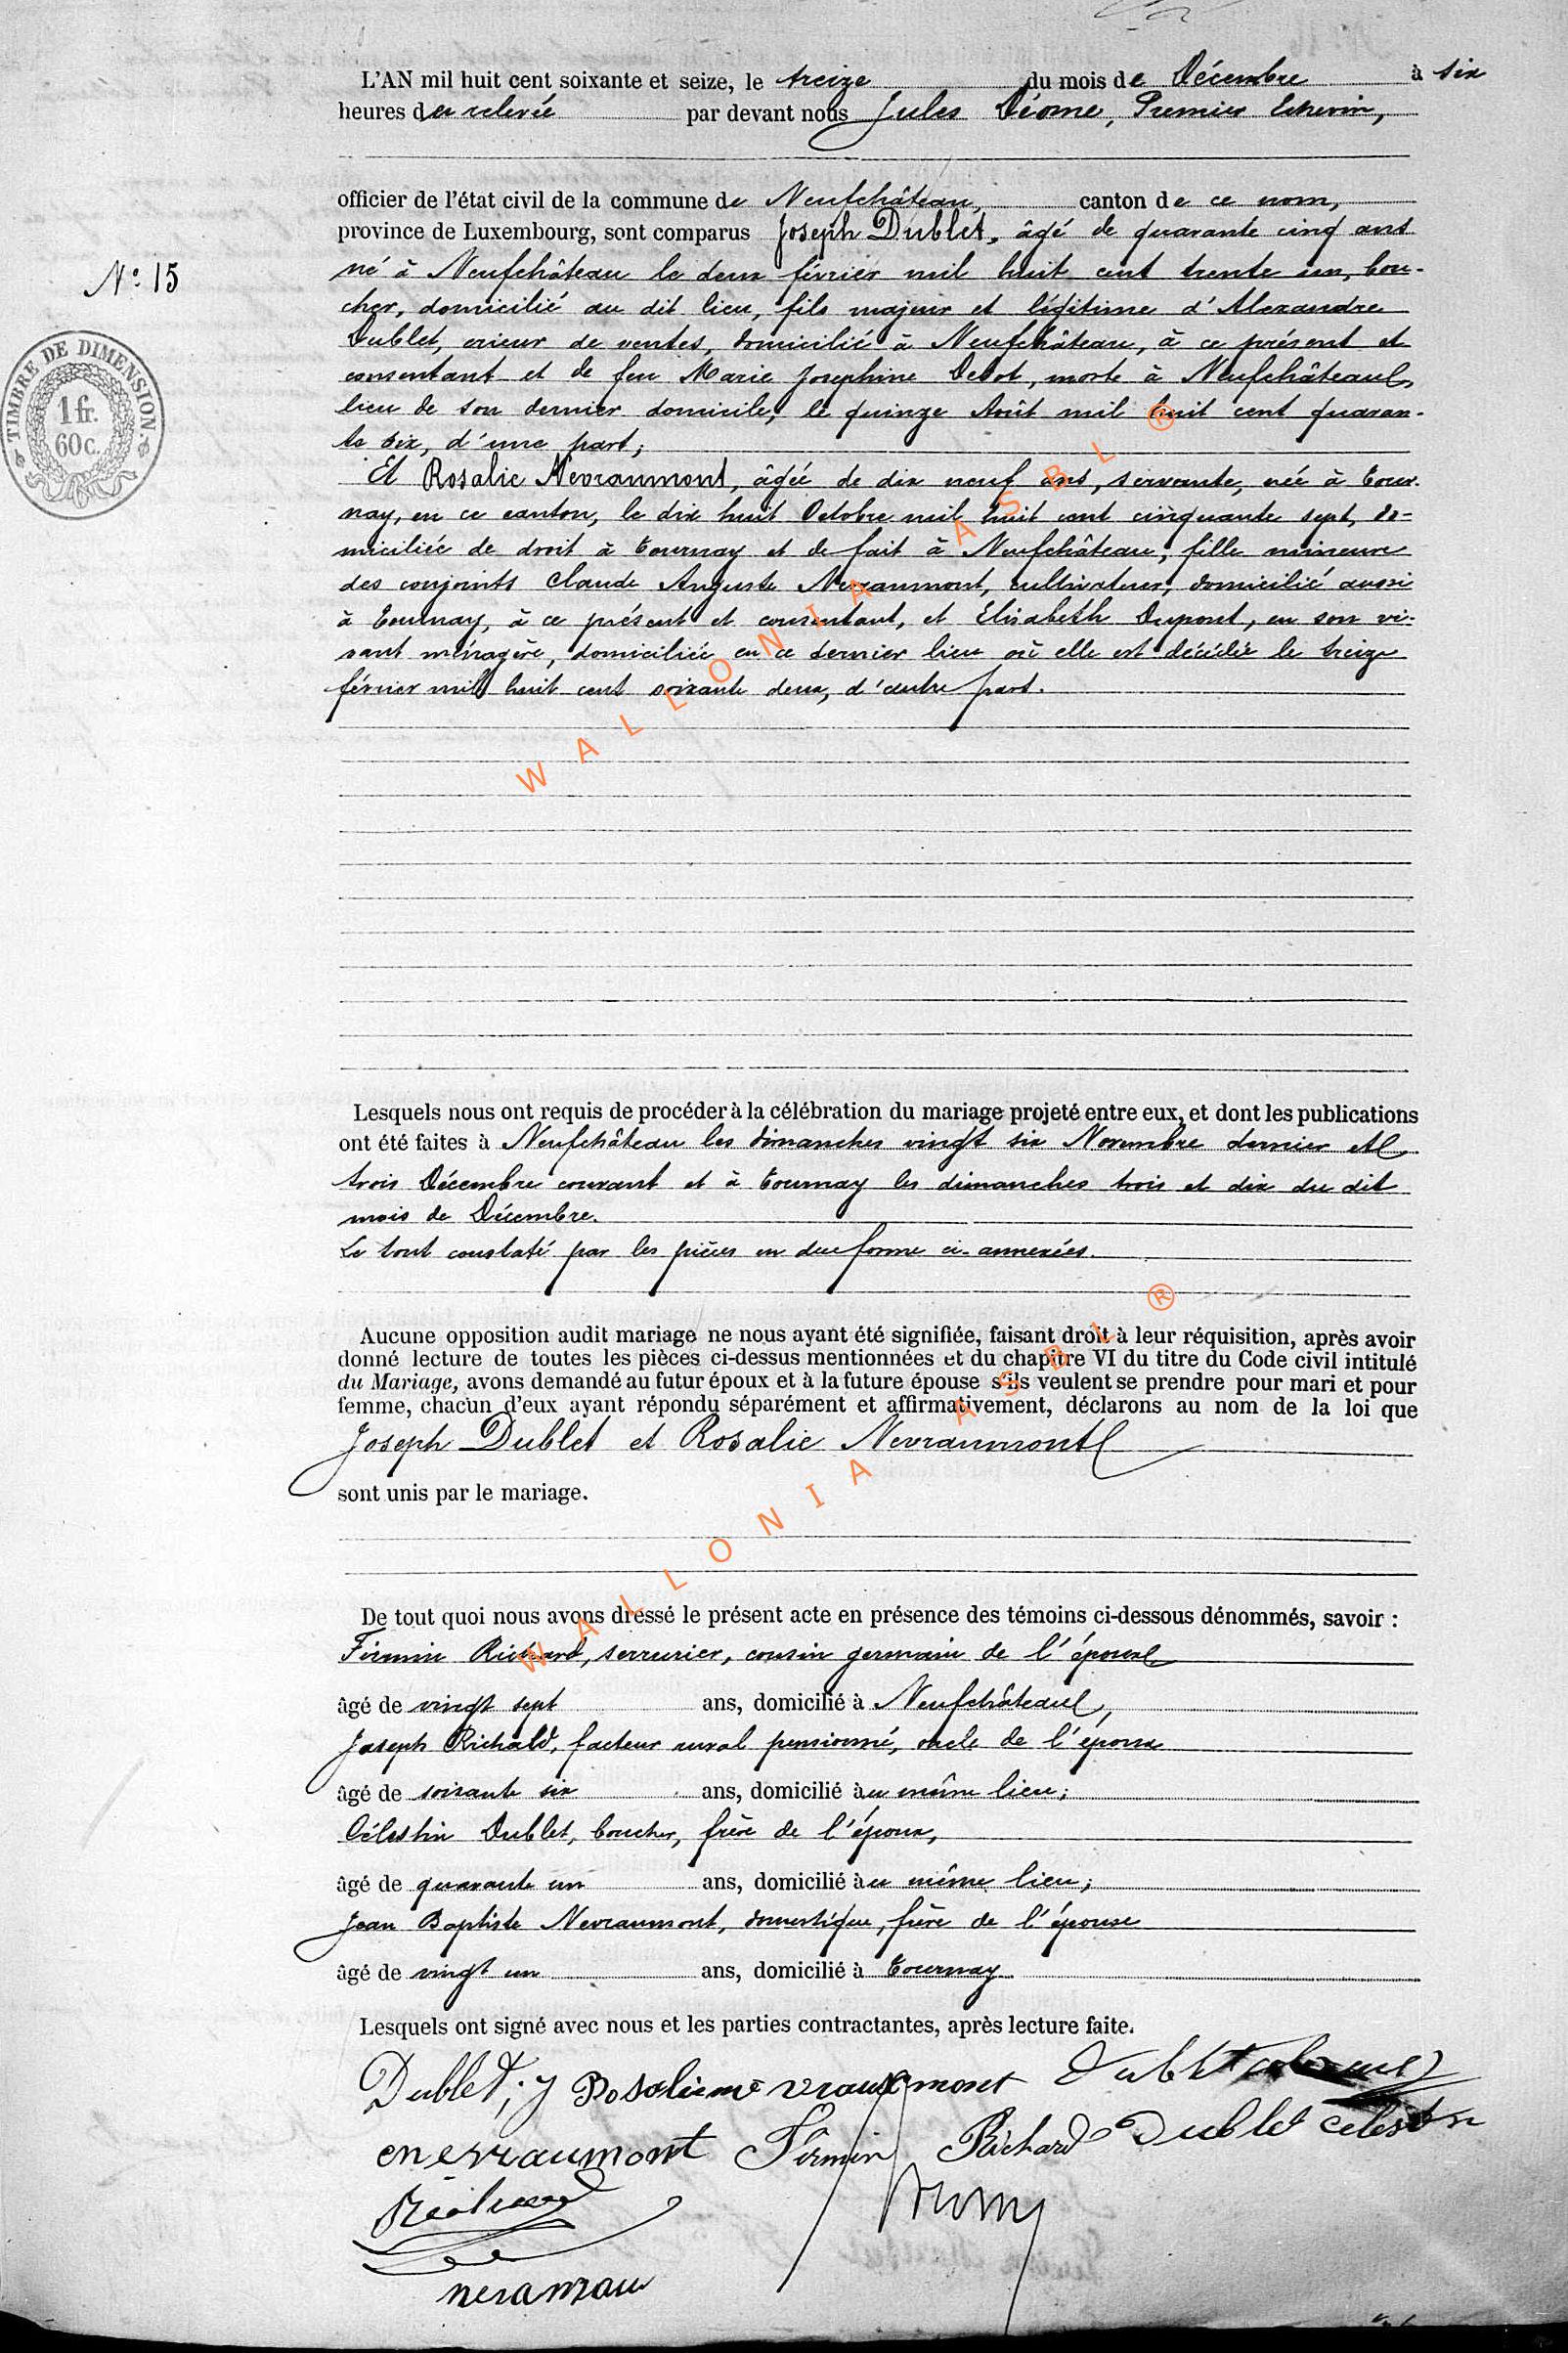 L'AN mil huit cent soixante et seize, le treize du mois de Décembre à six
heures de relevée par devant nous Jules Déome, Premier Echevin,
officier de l'état civil de la commune de Neufchâteau, canton de ce nom,
province de Luxembourg, sont comparus Joseph Dublet, âgé de quarante cinq ans
né à Neufchâteau le deux février mil huit cent trente un, bou-
N° 15
cher, domicilié au dit lieu, fils majeur et légitime d'Alexandre
Dublet, crieur de ventes, domicilié à Neufchâteau, à ce présent et
consentant et de feu Marie Josephine Debot, morte à Neufchâteau
lieu de son dernier domicile, le quinze Août mil huit cent quaran-
te six, d'une part;
TIMBRE DE DIMENSION
1 fr.
60 c.
Et Rosalie Nevraumont, âgée de dix neuf ans, servante, née à Tour-
nay, en ce canton, le dix huit Octobre mil huit cent cinquante sept, do-
miciliée de droit à Tournay et de fait à Neufchâteau, fille mineure
des conjoints Claude Auguste Nevraumont, cultivateur, domicilié aussi
à Tournay, à ce présent et consentant, et Elisabeth Dupont, en son vi-
vant ménagère, domiciliée en ce dernier lieu où elle est décédée le treize
février mil huit cent soixante deux, d'autre part.
WALLONIA ASBL ®
Lesquels nous ont requis de procéder à la célébration du mariage projeté entre eux, et dont les publications
ont été faites à Neufchâteau les dimanches vingt six Novembre dernier et
trois Décembre courant et à Tournay les dimanches trois et dix du dit
mois de Décembre.
Le tout constaté par les pièces en due forme ci-annexées.
Aucune opposition audit mariage ne nous ayant été signifiée, faisant droit à leur réquisition, après avoir
donné lecture de toutes les pièces ci-dessus mentionnées et du chapitre VI du titre du Code civil intitulé
du Mariage, avons demandé au futur époux et à la future épouse s'ils veulent se prendre pour mari et pour
femme, chacun d'eux ayant répondu séparément et affirmativement, déclarons au nom de la loi que
Joseph Dublet et Rosalie Nevraumont
sont unis par le mariage.
WALLONIA ASBL ®
De tout quoi nous avons dressé le présent acte en présence des témoins ci-dessous dénommés, savoir :
Firmin Richard, serrurier, cousin germain de l'épouse
âgé de vingt sept ans, domicilié à Neufchâteau,
Joseph Richald, facteur rural pensionné, oncle de l'épouse
âgé de soixante six ans, domicilié au même lieu;
Célestin Dublet, boucher, frère de l'époux,
âgé de quarante un ans, domicilié au même lieu;
Jean Baptiste Nevraumont, domestique, frère de l'épouse
âgé de vingt un ans, domicilié à Tournay
Lesquels ont signé avec nous et les parties contractantes, après lecture faite.
Dublet, J Rosalie nevraumont Dublet
cnevraumont Firmin Richard Dublet celestin